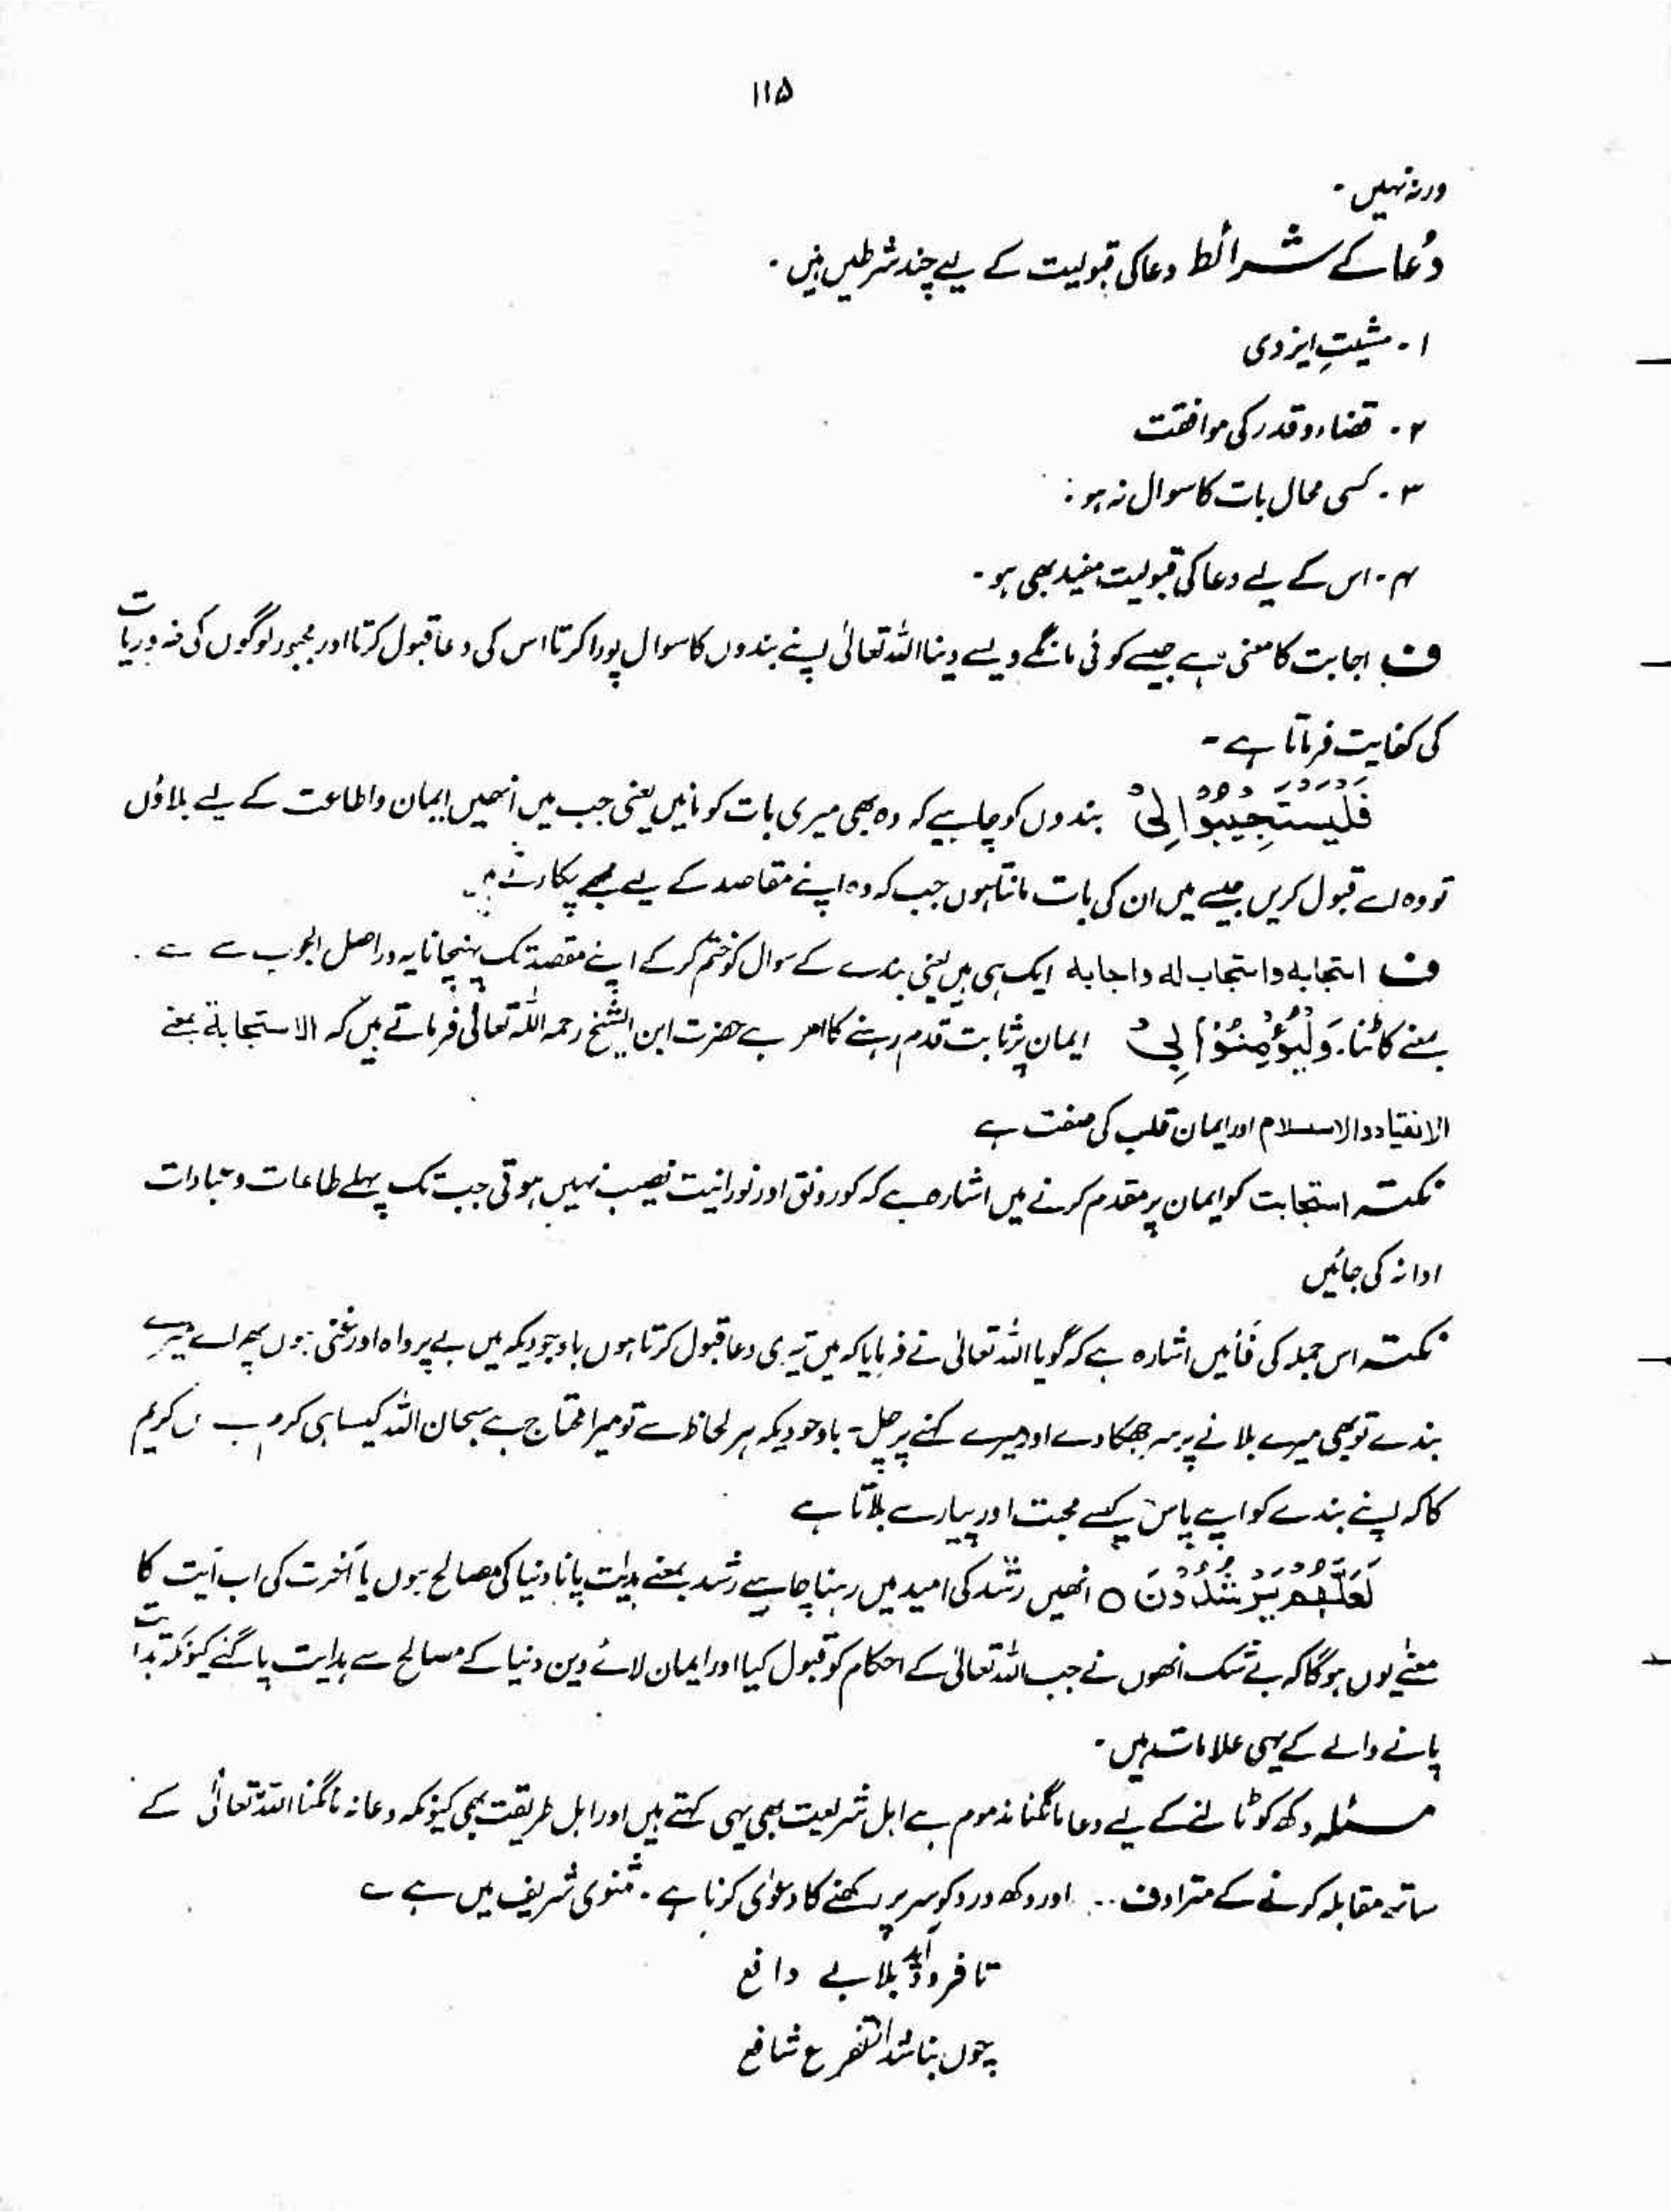 ۱۱۵
ورنہ نہیں ۔
دُعا کے شرائط دعا کی قبولیت کے لیے چند شرطیں ہیں ۔
۱ ۔ مشیتِ ایزدی
۲ ۔ قضاء و قدر کی موافقت
۳ ۔ کسی محال بات کا سوال نہ ہو :
۴ ۔ اس کے لیے دعا کی قبولیت مفید بھی ہو ۔
ف اجابت کا معنی ہے جیسے کوئی مانگے ویسے دینا اللہ تعالیٰ اپنے بندوں کا سوال پورا کرتا اس کی دعا قبول کرتا اور مجبور لوگوں کی ضروریات
کی کفایت فرماتا ہے ۔
فَلْيَسْتَجِيْبُوْا لِيْ بندوں کو چاہیے کہ وہ بھی میری بات کو مانیں یعنی جب میں انھیں ایمان و اطاعت کے لیے بلاؤں
تو وہ اسے قبول کریں جیسے میں ان کی بات مانتا ہوں جب کہ وہ اپنے مقاصد کے لیے مجھے پکارتے ہیں
ف استجابہ و استجاب لہ و اجابہ ایک ہی ہیں یعنی بندے کے سوال کو ختم کر کے اپنے مقصد تک پہنچانا یہ دراصل الجوب سے ہے ۔
بمعنے کاٹنا ۔ وَلْيُؤْمِنُوْا بِيْ ایمان پر ثابت قدم رہنے کا امر ہے حضرت ابن الشیخ رحمہ اللہ تعالیٰ فرماتے ہیں کہ الاستجابة بمعنے
الانقیاد والاسلام اور ایمان قلب کی صفت ہے
نکتہ استجابت کو ایمان پر مقدم کرنے میں اشارہ ہے کہ کو رونق اور نورانیت نصیب نہیں ہوتی جب تک پہلے طاعات و عبادات
ادا نہ کی جائیں
نکتہ اس جملہ کی فَا میں اشارہ ہے کہ گویا اللہ تعالیٰ نے فرمایا کہ میں تیری دعا قبول کرتا ہوں باوجودیکہ میں بے پرواہ اور غنی ہوں پھر اے میرے
بندے تو بھی میرے بلانے پر سر جھکا دے اور میرے کہنے پر چل ۔ باوجودیکہ ہر لحاظ سے تو میرا محتاج ہے سبحان اللہ کیسا ہی کرم ہے کریم
کا کہ اپنے بندے کو اپنے پاس کیسے محبت اور پیار سے بلاتا ہے
لَعَلَّهُمْ يَرْشُدُوْنَ ○ انھیں رشد کی امید میں رہنا چاہیے رشد بمعنے ہدایت پانا دنیا کی مصالح ہوں یا آخرت کی اب آیت کا
معنٰے یوں ہوگا کہ بے شک انھوں نے جب اللہ تعالیٰ کے احکام کو قبول کیا اور ایمان لائے دین دنیا کے مصالح سے ہدایت پا گئے کیونکہ ہدایت
پانے والے کے یہی علامات ہیں ۔
مسئلہ دکھ کو ٹالنے کے لیے دعا مانگنا مذموم ہے اہل شریعت بھی یہی کہتے ہیں اور اہل طریقت بھی کیونکہ دعا نہ مانگنا اللہ تعالیٰ کے
ساتھ مقابلہ کرنے کے مترادف .. اور دکھ درد کو سر پر رکھنے کا دعوٰی کرنا ہے ۔ مثنوی شریف میں ہے ؎
تا فرود آید بلا بے دافع
چوں نباشد از تضرع شافع